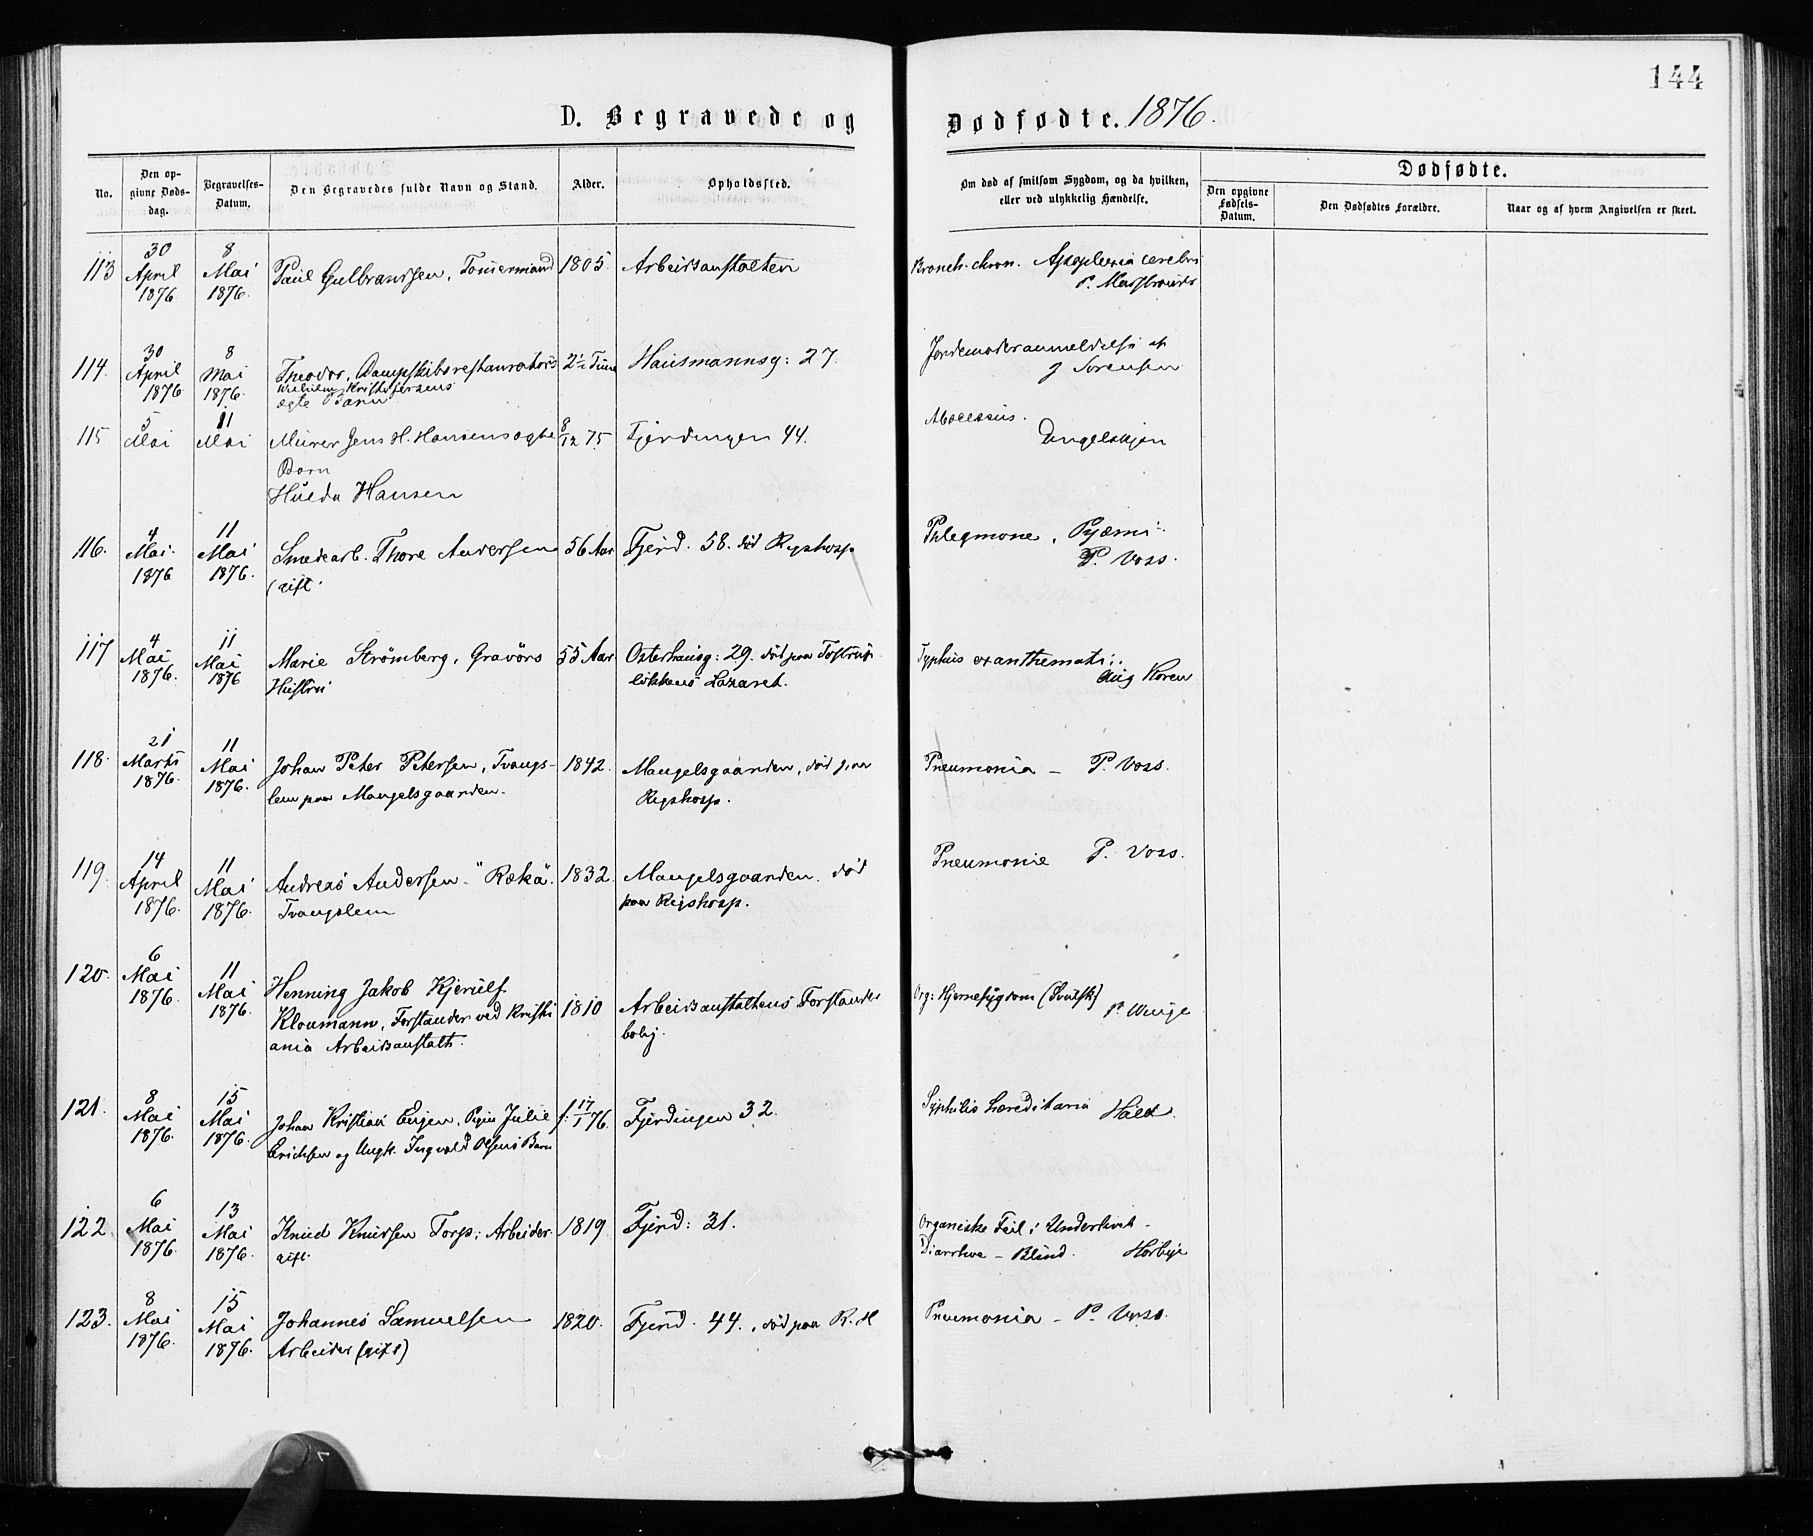 144
D. Begravede og Dødfødte. 1876.
No. | Den opgivne Dødsdag. | Begravelses-Datum. | Den Begravedes fulde Navn og Stand. | Alder. | Opholdssted. | Om død af smitsom Sygdom, og da hvilken, eller ved ulykkelig Hændelse. | Dødfødte. | Den opgivne Fødsels-Datum. | Den Dødfødtes Forældre. | Naar og af hvem Angivelsen er skeet.
113 | 30 April 1876 | 8 Mai 1876. | Paul Gulbranssen, Tømermand | 1805. | Arbeidsanstalten | Bronch. chron. Apoplexia cerebri P.
114. | 30 April 1876 | 8 Mai 1876. | Theodor, Dampskibsrestauratørs
Kristofersens
ægte Barn | 2½ Time | Hausmannsg: 27. | Jordemoderanmeldelse af
J Sørensen
115 | 5 Mai | 11 Mai | Murer Jens H. Hansens ægte
Barn
Hulda Hansen | 8/12 75. | Fjerdingen 44. | Abscessus.
Engelskjøn
116. | 4 Mai. 1876 | 11 Mai 1876. | Smedearb. Thore Andersen
(gift | 56 Aar | Fjerd. 58. død Rigshosp | Phlegmone, Pyæmi
P. Voss.
117 | 4 Mai 1876. | 11 Mai 1876 | Marie Strømberg, Gravørs
Hustru | 55 Aar | Osterhausg: 29. død paa Tostrup
løkkens Lazaret. | Typhus exanthemati:.
Aug Koren
118. | 21 Marts 1876. | 11 Mai 1876. | Johan Peter Petersen, Tvangs-
lem paa Mangelsgaarden. | 1842. | Mangelsgaarden, død paa
Rigshosp. | Pneumonia – P. Voss.
119. | 14 April 1876. | 11 Mai 1876. | Andreas Andersen "Rækå".
Tvangslem | 1832. | Mangelsgaarden. død
paa Rigshosp. | Pneumonie P. Voss.
120. | 6 Mai 1876. | 11 Mai 1876. | Henning Jakob Kjerulf
Kloumann, Forstander ved Kristi
ania Arbeidsanstalt. | 1810 | Arbeidsanstaltens Forstander
bolig. | Org: Hjernesygdom P. Winge
121. | 8 Mai 1876. | 15 Mai 1876. | Johan Kristian Eugen, Pigen Julie
Erichsen og Ungk. Ingvald Olsens Barn | f. 17/1 76. | Fjerdingen 32. | Syphilis hæreditaria Hald.
122 | 6 Mai 1876. | 13 Mai 1876. | Knud Knudsen Torp: Arbeider
gift. | 1819. | Fjerd: 31. | Organiske Feil i Underlivet –
Diarrhoe – Blind. Horbye
123. | 8 Mai 1876. | 15 Mai 1876. | Johannes Samuelsen
Arbeider (gift) | 1820. | Fjerd. 44., død paa R. H | Pneumonia – P. Voss.